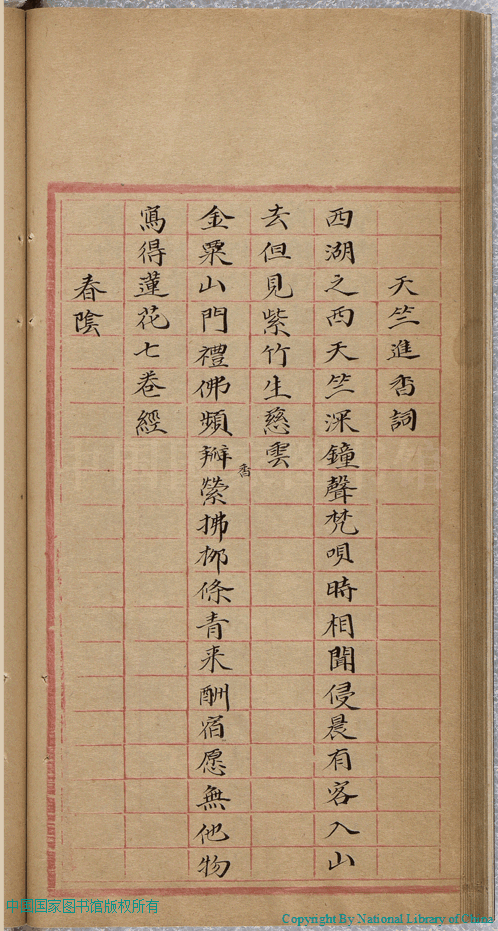 天竺進香詞
西湖之西天竺深鐘聲梵唄時相聞侵晨有客入山
去但見紫竹生慈雲
金粟山門禮佛頻瓣香縈拂桞條青来酬宿愿無他物
寫得蓮花七卷經
春陰
中国国家图书馆版权所有
Copyright By National Library of China